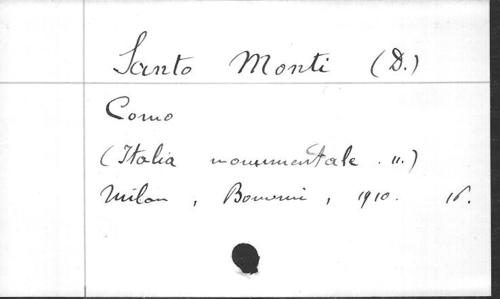 Santo Monti (D.)
Como
(Italia monumentale . 11.)
Milan , Bonomi , 1910. 16.